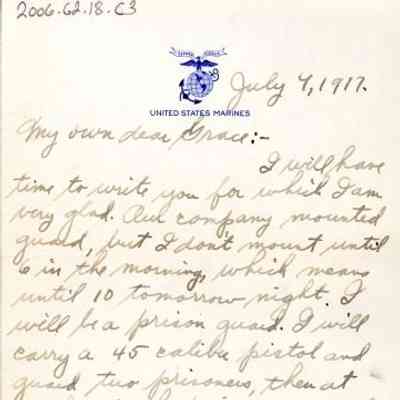 2006.62.18.C3
July 4, 1917.
UNITED STATES MARINES
My own dear Grace:-
I will have
time to write you for which I am
very glad. Our company mounted
guard, but I don't mount until
6 in the morning, which means
until 10 tomorrow night. I
will be a prison guard. I will
carry a 45 calibu pistol and
guard two prisoners, then at